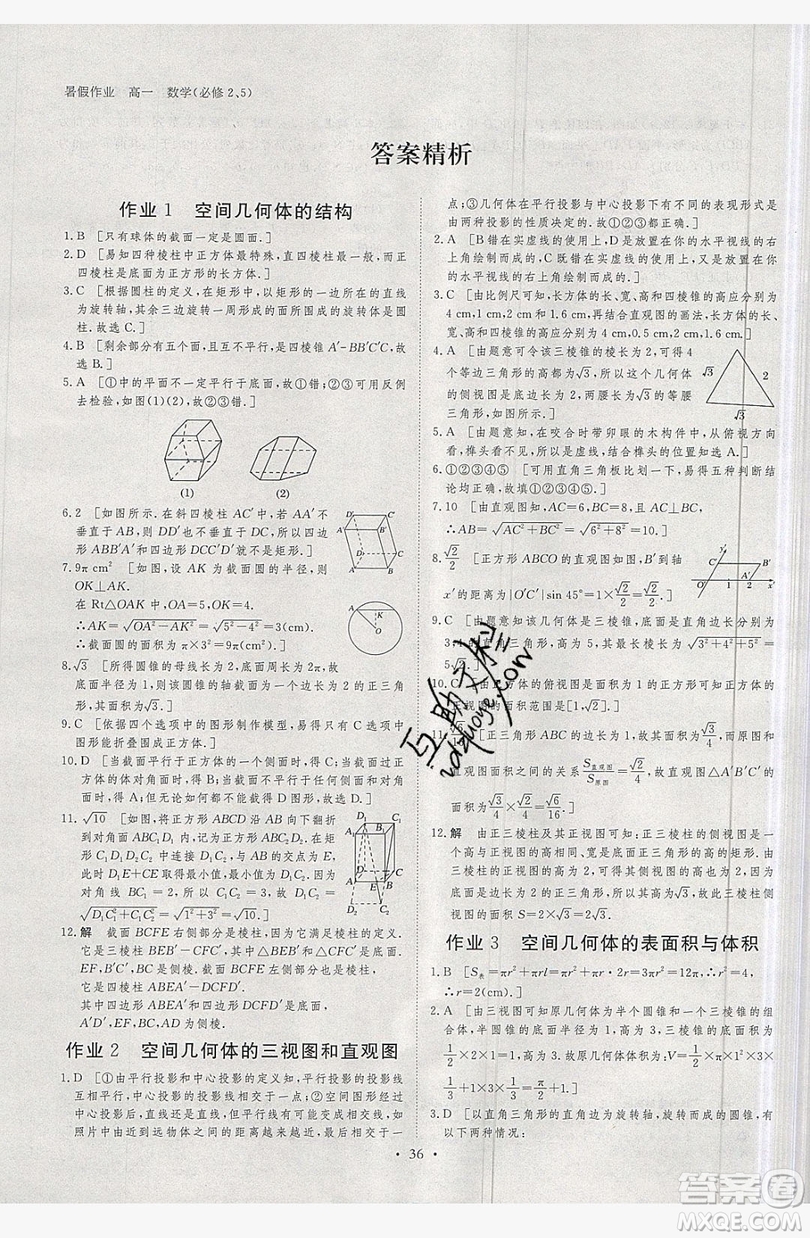 暑假作业　高一　数学(必修2、5)
答案精析
作业1　空间几何体的结构
1.B　[只有球体的截面一定是圆面.]
2.D　[易知四棱柱中正方体最特殊，直四棱柱最一般，其余
四棱柱是底面为正方形的长方体.]
3.C　[根据圆柱的定义，在矩形中，以矩形的一边所在的直线
为旋转轴，其余三边旋转一周形成的面所围成的旋转体是圆
柱.故选C.]
4.B　[剩余部分有五个面，且互不平行，是四棱锥A-BB′C′C，故
选B.]
5.A　[①中的平面不一定平行于底面，故①错.②③可用反例
去检验，如图(1)(2)，故②③错.]
(1)
(2)
6.2　[如图所示.在斜四棱柱AC′中，若AA′不
垂直于AB，则DD′也不垂直于DC，所以四边
形ABB′A′和四边形DCC′D′就不是矩形.]
7.9π cm²　[如图，设AK为截面圆的半径，则
OK⊥AK.
在Rt△OAK中，OA=5，OK=4，
∴AK=√(OA²−OK²)=√(5²−4²)=3(cm)，
∴截面圆的面积为π×3²=9π(cm²).]
8.√3　[所得圆锥的母线长为2，底面圆周长为2π，故
底面半径为1，则该圆锥的轴截面为边长为2的正三角
形，故高为√3.]
9.C　[依据四个选项中的图形制作模型，只有C选项中
图形能折叠围成正方体.]
10.D　[当截面平行于正方体的一个侧面时得C；当截面
过正方体的体对角线时得B；当截面不平行于任何侧
面也不过体对角线时得A；但无论如何都不能得出D.]
11.√10　[如图，将正方形ABCD沿AB向下翻折
到对角面ABC₁D₁内，成为正方形ABC₂D₂，在
矩形C₁D₁D₂C₂中连接D₁C₂与AB的交点为E，
此时D₁E+CE取得最小值，最小值为D₁C₂，
因为对角线BC₁=2，则C₁C₂=3，故D₁C₂=
√(D₁C₁²+C₁C₂²)=√(1²+3²)=√10.]
12.解　截面BCFE右侧部分是棱柱，因为它满足棱柱的定义.
它是三棱柱BEB′-CFC′，其中△BEB′和△CFC′是底面.
EF，B′C′，BC是侧棱，截面BCFE左侧部分也是棱柱.
它是四棱柱ABEA′-DCFD′.
其中四边形ABEA′和四边形DCFD′是底面.
A′D′，EF，BC，AD为侧棱.
作业2　空间几何体的三视图和直观图
1.D　[①由平行投影和中心投影的定义知，平行投影的投影线
互相平行，中心投影的投影线相交于一点；②空间图形经过
中心投影后，直线可能变成直线，也可能变成一个点，如
照片中由近到远物体之间的距离越来越近，最后相交于一
点；③几何体在平行投影与中心投影下有不同的表现形式是
由两种投影的性质决定的.故①②③均对.]
2.A　[B错在实虚线的不确定性；D是放置在你的水平视线的
左上角绘制而成的，C既错在实虚线，又是放置在你的水平
视线的右上角绘制而成的.]
3.C　[由比例尺可知，长方体的长、宽、高和四棱锥的高应分别为
4 cm，1 cm，2 cm和1.6 cm，再结合直观图的画法，长方体的
长、宽、高和四棱锥的高应分别为4 cm，0.5 cm，2 cm，1.6 cm.]
4.A　[由题意可令该三棱锥的棱长为2，可得4
个等边三角形的高都为√3，且侧视图是等腰三
角形，底边是棱长为2，另外两个边长是等边三
角形高，为√3.]
√3
2
√3
5.A　[由题意知，在咬合时带卯眼的木构件中，从俯视方向看，
榫头看不见，所以是虚线，结合榫头的位置知选A.]
6.①②③④⑤　[可用直角三角板比划一下，易得五种判断结
论均正确.]
7.10　[由直观图知，AC=6，BC=8，AC⊥BC，
∴AB=√(AC²+BC²)=√(6²+8²)=10.]
8.√2/2　[正方形ABCO的直观图如图，B′到轴
x′的距离为|O′C′|sin 45°=1/√2=√2/2.]
9.C　[由题意知该几何体为三棱锥，底面是直角边长为3和4
的直角三角形，高为5，最长的棱长为√(3²+4²+5²)=
5√2.]
10.C　[由题意知，正方体的俯视图是面积为1的正方形可知正方体
的正视图的面积范围是[1,√2].]
直观图面积之间的关系 S直观图/S原图=√2/4，故直观图△A′B′C′的
面积为√3/4×√2/4=√6/16.]
12.解　由正三棱柱及其正视图可知，正三棱柱的侧视图是一
个与左侧面全等的矩形，根据三视图的作图原则“长对正、
高平齐、宽相等”，底面正三角形的高为√3，即为侧视图矩
形的一边长，另一边长为正三棱柱的高2，故侧视图矩形的
面积S=2×√3=2√3.
作业3　空间几何体的表面积与体积
1.B　[S表=πr²+πrl=πr²+πr·2r=3πr²=12π，∴r²=4，
∴r=2(cm).]
2.A　[由三视图可知原几何体为半个圆锥和一个三棱锥的组
合体，半圆锥的底面半径为1，高为3，三棱锥的底面积为
1/2×2×1=1，高为3，故原几何体的体积为：V=1/2×π×
1²×3×1/3+1×3×1/3=π/2+1.]
3.D　[以直角三角形的直角边为旋转轴，旋转而成的圆锥，有
以下两种情况：
• 36 •
互助文栏
答案圈
MXQE.COM